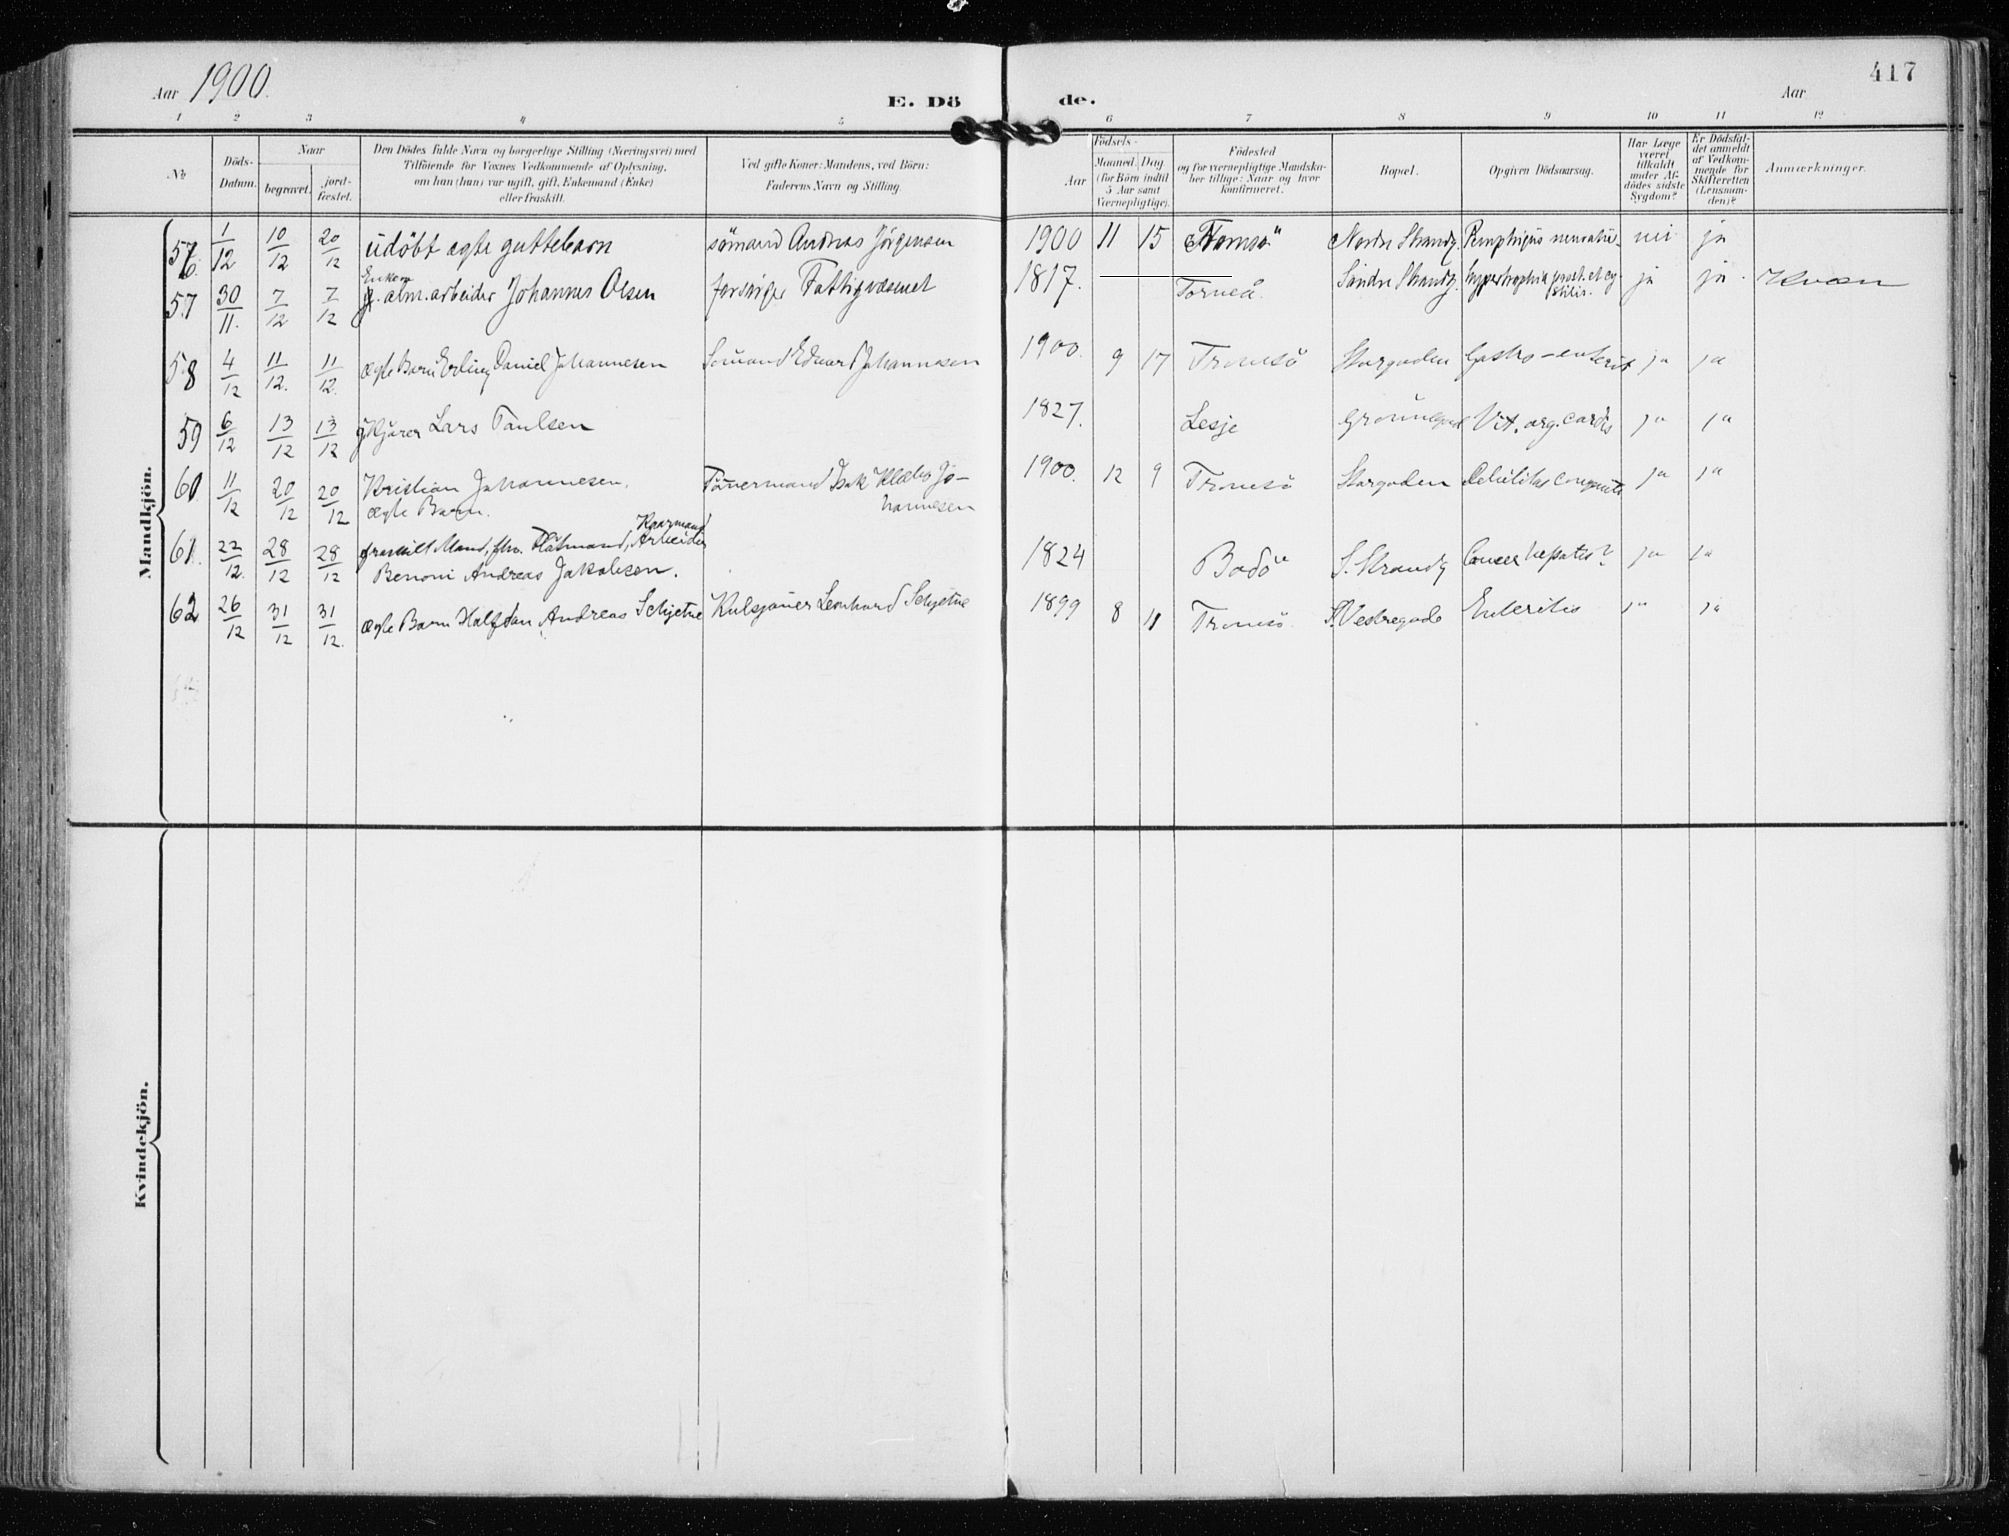 Aar 1900.
E. Dö de.
Aar
417
1 2 3 4 5 6 7 8 9 10 11 12
№
Döds-Datum.
Naar
begravet.
jord-fæstet.
Den Dödes fulde Navn og borgerlige Stilling (Næringsvei) med
Tilföiende for Voxnes Vedkommende af Oplysning,
om han (hun) var ugift, gift, Enkemand (Enke)
eller fraskilt.
Ved gifte Koner: Mandens, ved Börn:
Faderens Navn og Stilling.
Födsels-
Aar
Maaned. Dag
(for Börn indtil
5 Aar samt
Værnepligtige).
Födested
og for værnepligtige Mandska-
ber tillige: Naar og hvor
konfirmeret.
Bopæl.
Opgiven Dödsaarsag.
Har Læge
været
tilkaldt
under Af-
dödes sidste
Sygdom?
Er Dödsfal-
det anmeldt
af Vedkom-
mende for
Skifteretten
(Lensman-
den)?
Anmærkninger.
Mandkjön.
56. 1/12 10/12 20/12 udöbt ægte guttebarn sömand Andreas Jörgensen 1900 11 15 Tromsö Nordre Strandg. Pemphigus nei ja
Enkem.
57 30/11. 7/12 7/12 alm. arbeider Johannes Olsen forsörges Fattigvæsenet 1817. Torneå. Söndre Strandg. hypertrophia prost. et cy-
stitis. ja ja. Kvæn
58 4/12 11/12. 11/12. ægte Barn Erling Daniel Johannesen Sömand Edvard Johannesen 1900. 9 17 Tromsö Storgaden Gastro-enterit ja ja
59 6/12 13/12 13/12 Kjörer Lars Paulsen 1827. Lesje Grönnegad Vit. org. cordis ja ja
60. 11/12 20/12 20/12 Kristian Johannesen. Isak Jo- 1900. 12 9 Tromsö Storgaden Debilitas congenita ja ja
ægte Barn. hannesen
61. 22/12. 28/12 28/12 fraskilt Mand, fhv. Arbeider 1824 Bodö S. Strandg Cancer hepatis? ja ja
Benoni Andreas Jakobsen.
62 26/12 31/12 31/12. ægte Barn Halfdan Andreas Schjetne Kulsjouer Leonhard Schjetne 1899 8 11 Tromsö. Vestregade Enteritis ja ja
Kvindekjön.